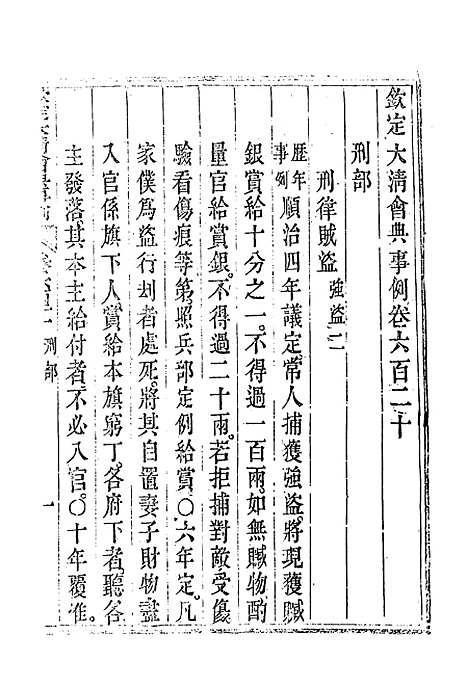 欽定大清會典事例卷六百二十
刑部
刑律賊盜強盜二
歷年事例順治四年議定常人捕獲強盜將現獲贓
銀賞給十分之一不得過一百兩如無贓物酌
量官給賞銀不得過二十兩若拒捕對敵受傷
驗看傷痕等第照兵部定例給賞○六年定凡
家僕爲盜行刦者處死將其自置妻子財物盡
入官係旗下人賞給本旗窮丁各府下者聽各
主發落其本主給付者不必入官○十年覆准
刑部 一